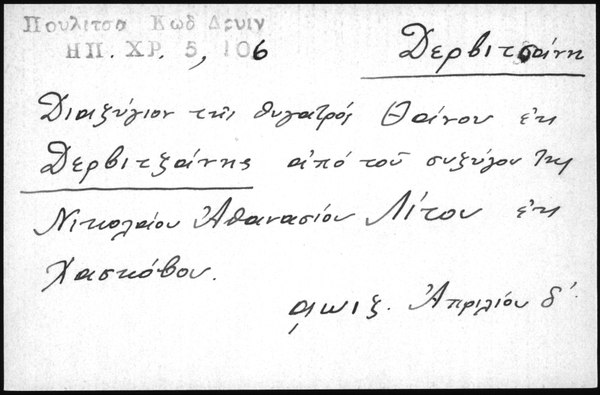 Πουλιτσα Κωδ Δρυιν
ΗΠ. ΧΡ. 5, 106
Δερβιτσάνη
Διαζύγιον τῆς θυγατρός Θαίνου ἐκ
Δερβιτζάνης ἀπό τοῦ συζύγου της
Νικολαίου Ἀθανασίου Λίτου ἐκ
Χασκόβου.
αωιζ. Ἀπριλίου δ΄.